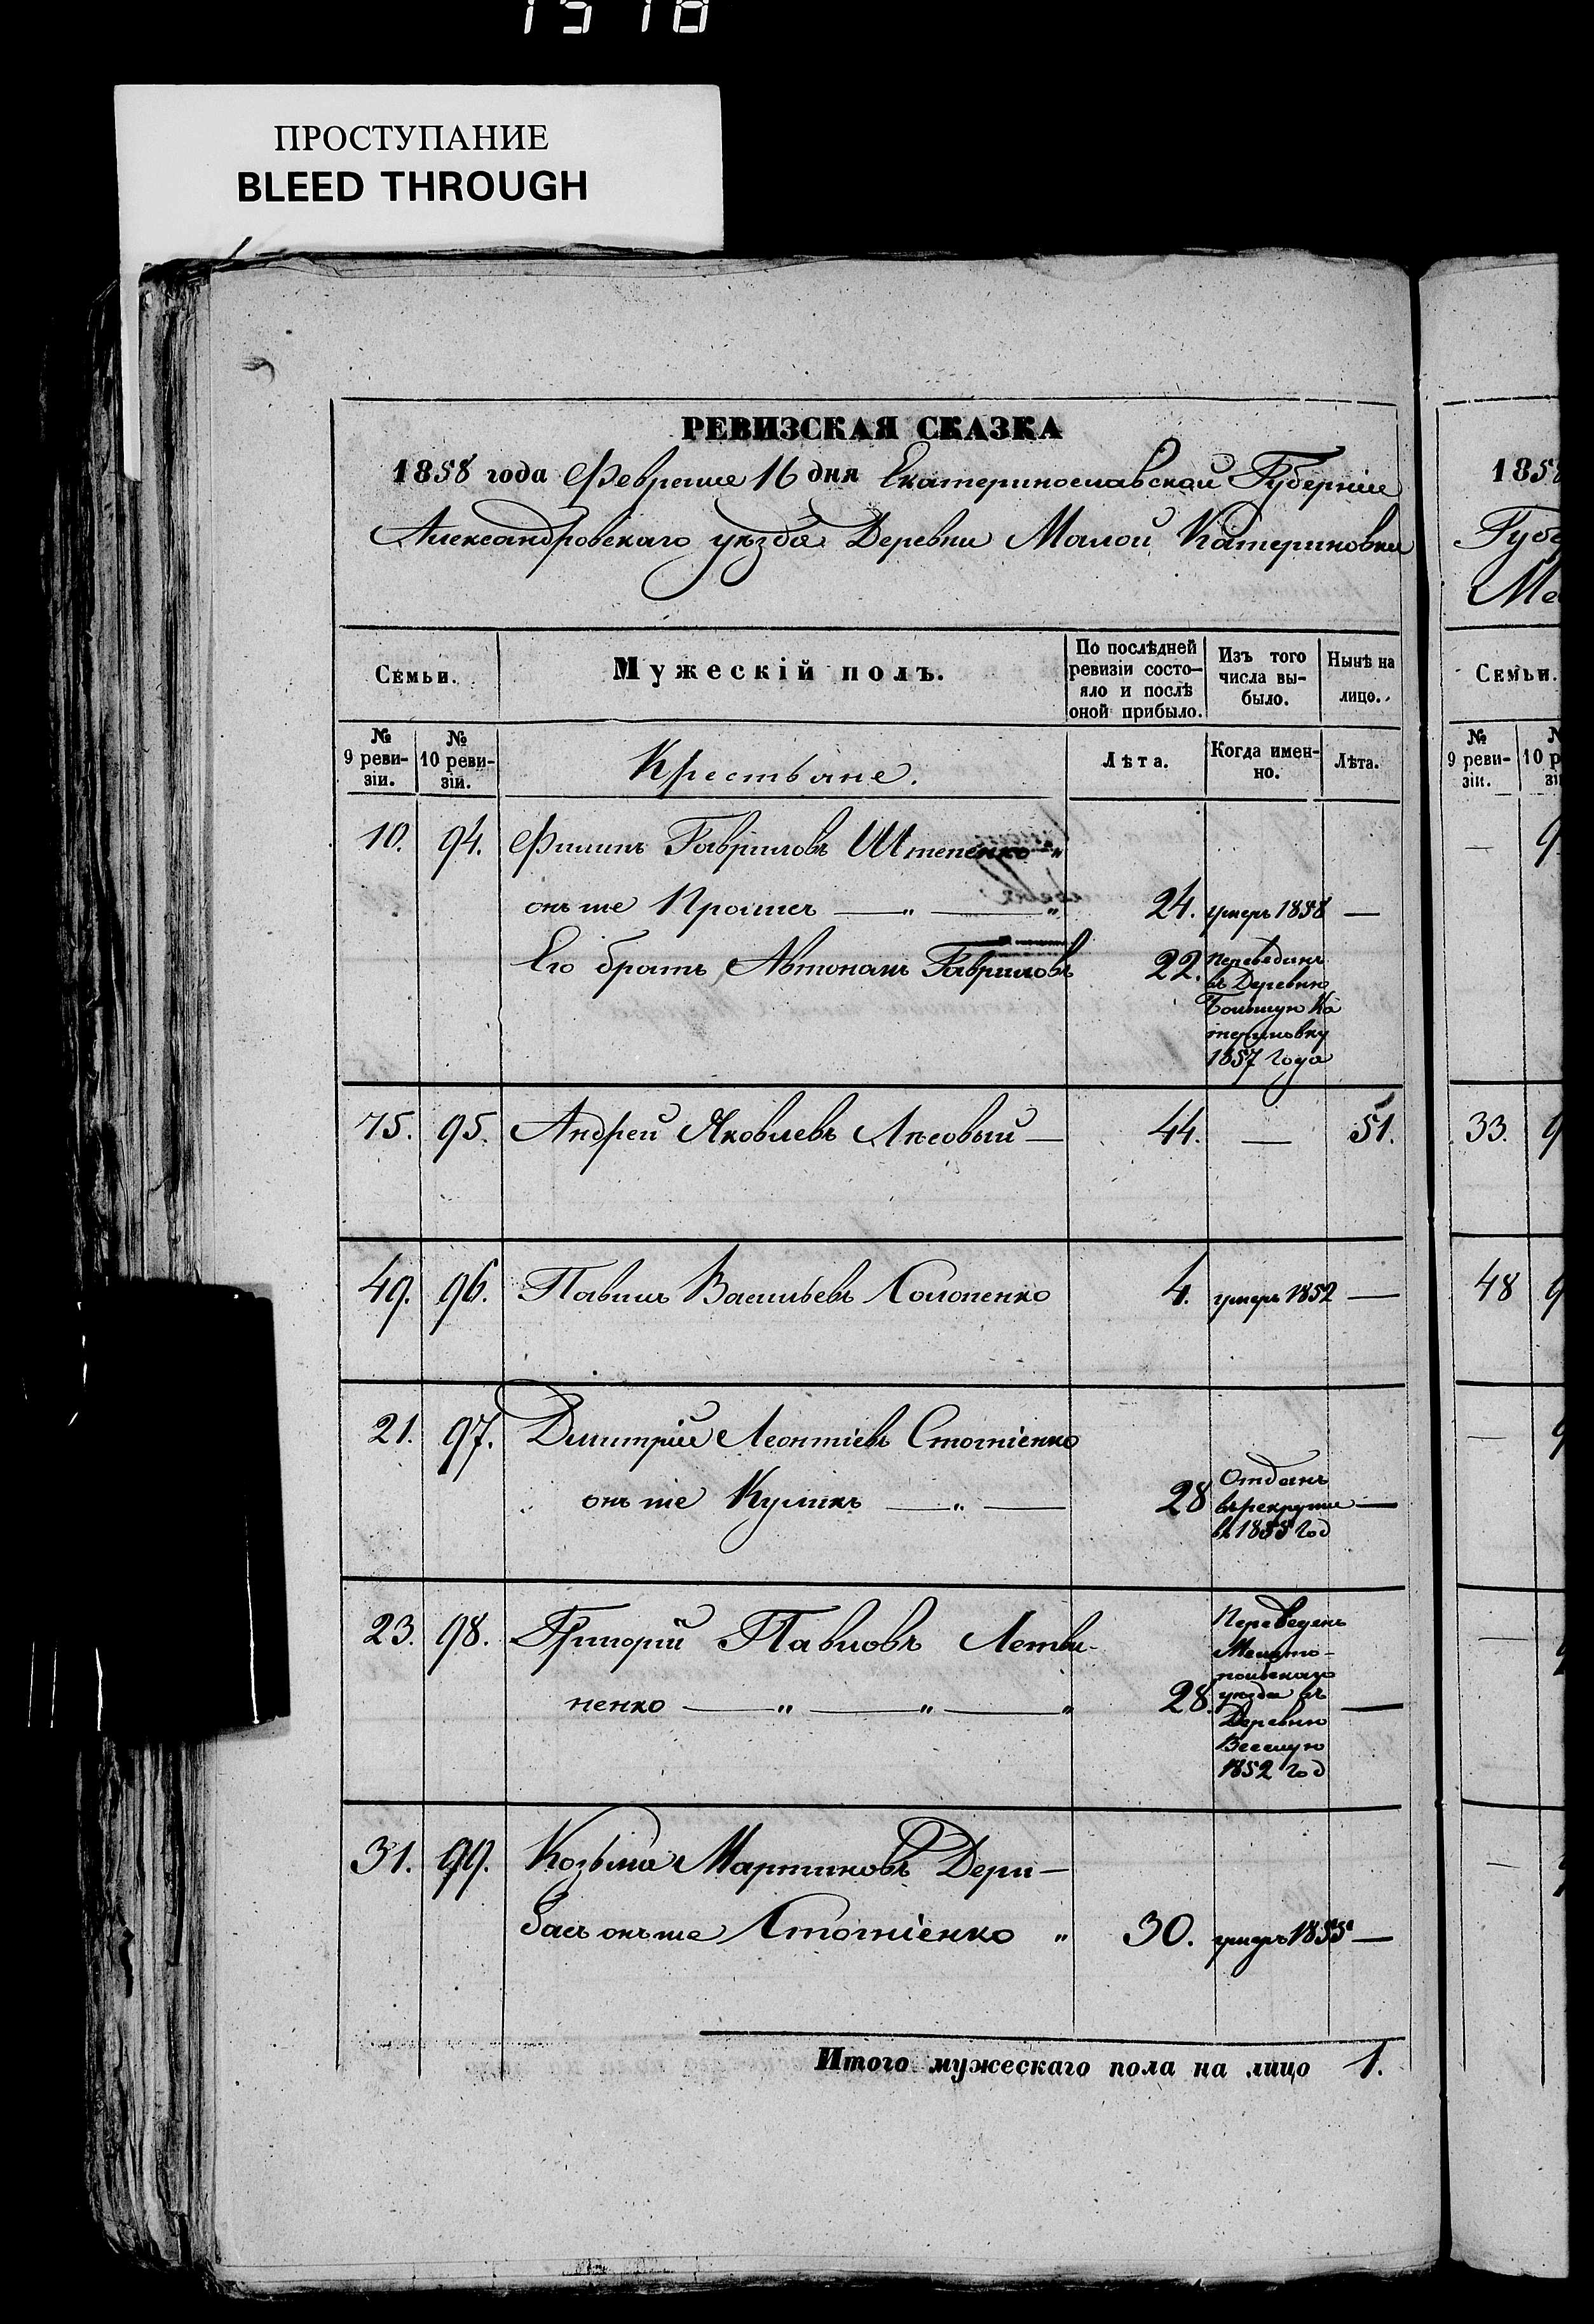 1518
ПРОСТУПАНИЕ
BLEED THROUGH
РЕВИЗСКАЯ СКАЗКА
1858 года Февраля 16 дня Екатеринославской Губерніи
Александровскаго уѣзда Деревни Малой Катериновки
Семьи. Мужескій полъ. По послѣдней ревизіи состо- яло и послѣ оной прибыло. Изъ того числа вы- было. Нынѣ на лицо.
№ 9 реви- зіи. № 10 реви- зіи. Крестьяне. Лѣта. Когда имен- но. Лѣта.
10. 94. Филипъ Гавриловъ Штепенко „
онъ же Крошка — „ — „ 24. умеръ 1858 —
Его братъ Автономъ Гавриловъ 22. Переведенъ
въ Деревню
Большую Ка
териновку
1857 года
75. 95. Андрей Яковлевъ Лѣсовый — 44. — 51.
49. 96. Павилъ Васильевъ Солопенко 4. умеръ 1852 —
21. 97. Дмитрій Леонтіевъ Стогніенко
онъ же Куликъ — „ — 28 Отданъ
въ рекруты —
въ 1855 год
23. 98. Григорій Павловъ Летви-
ненко — „ — „ — „ 28. Переведенъ
Мелито-
польскаго
уѣзда въ —
Деревню
Веселую
1852 год
31. 99. Козьма Мартиновъ Дери-
басъ онъ же Стогніенко „ 30. умеръ 1855 —
Итого мужескаго пола на лицо 1.
1858
Губе
Ма
Семьи.
№ 9 реви- зіи.
33.
48